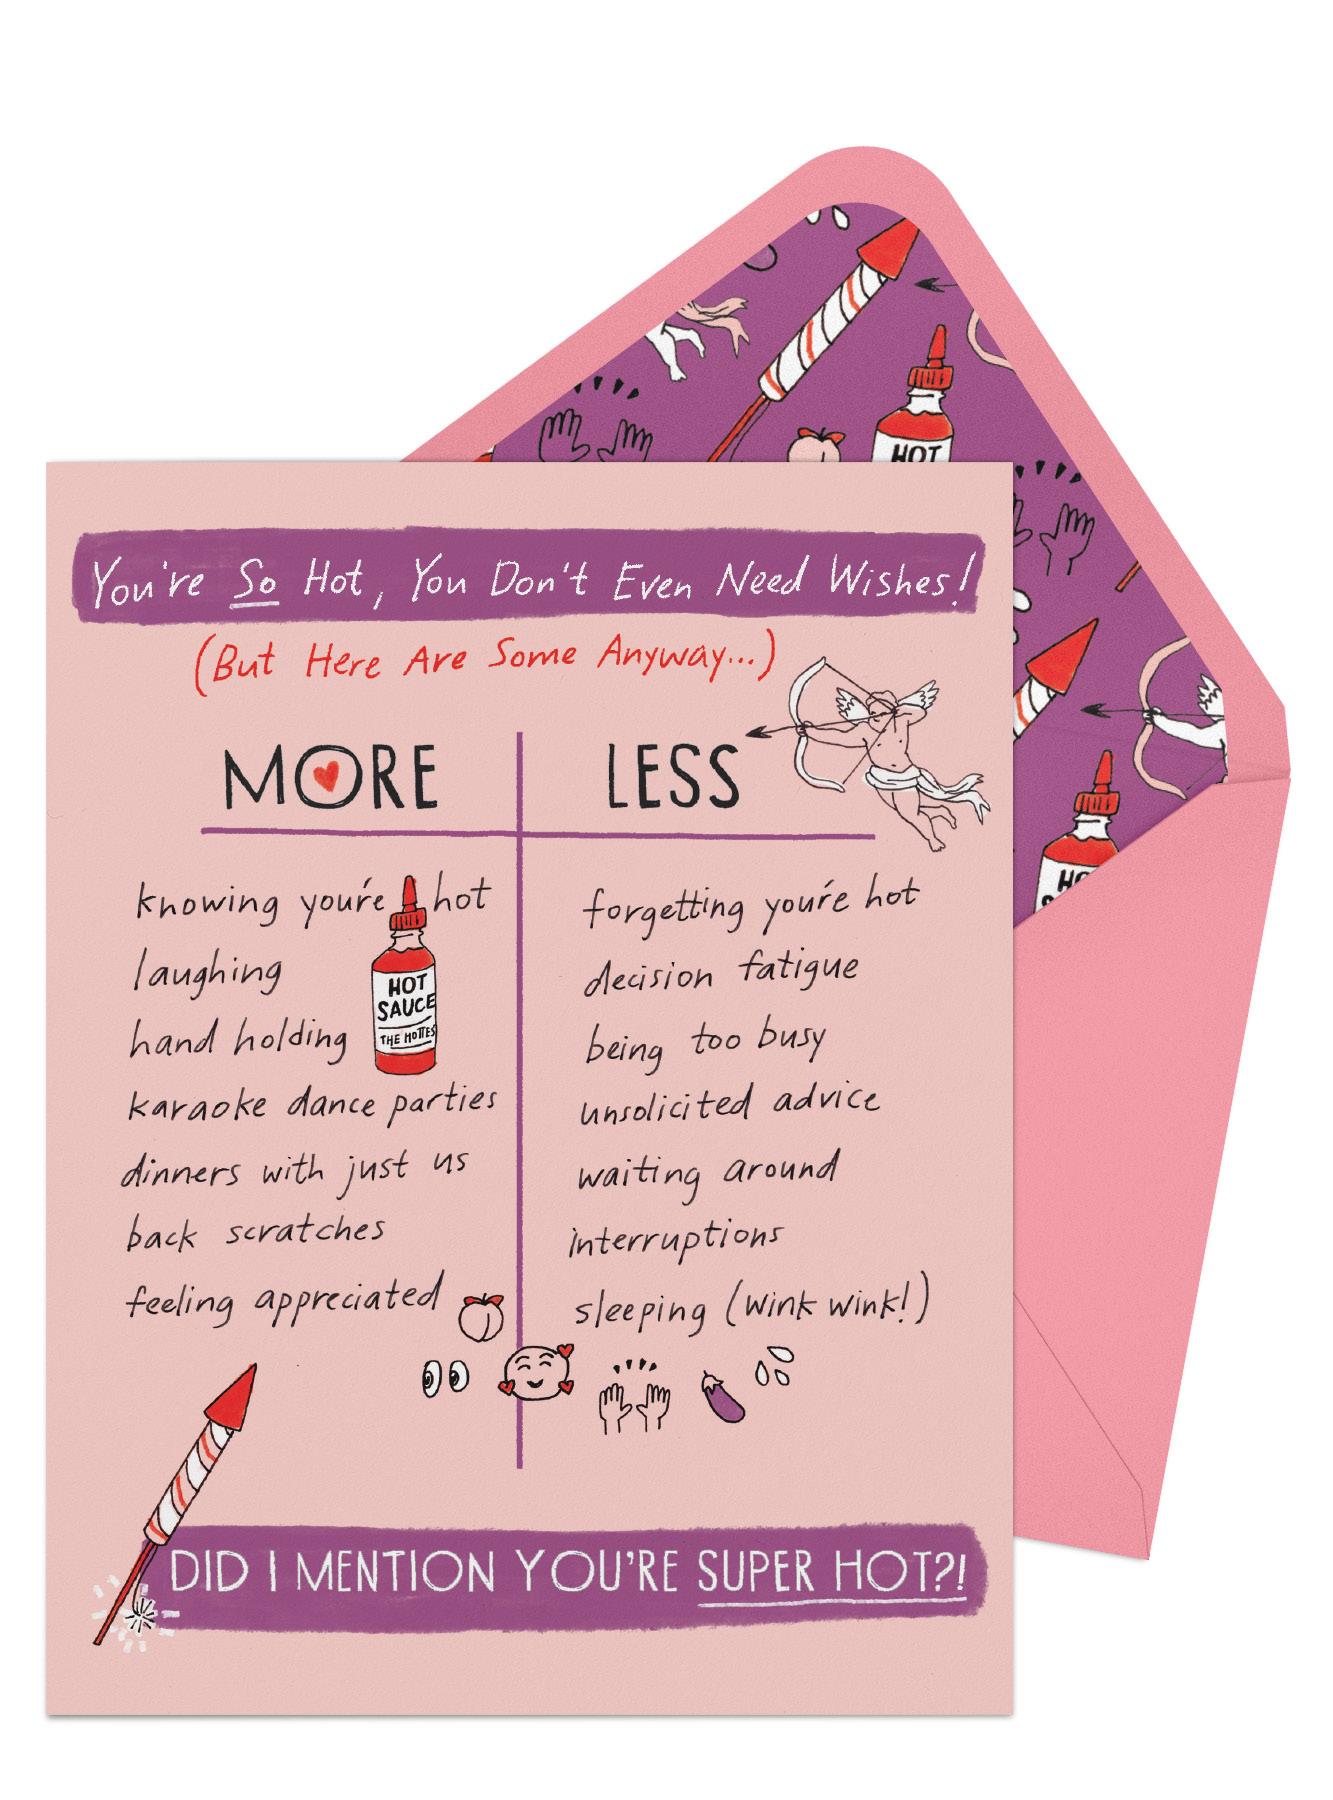 You're So Hot, You Don't Even Need Wishes!
(But Here Are Some Anyway...)
MORE
knowing you're hot
laughing
hand holding
karaoke dance parties
dinners with just us
back scratches
feeling appreciated
LESS
forgetting you're hot
decision fatigue
being too busy
unsolicited advice
waiting around
interruptions
sleeping (wink wink!)
HOT
SAUCE
THE HOTTES
DID I MENTION YOU'RE SUPER HOT?!
HOT